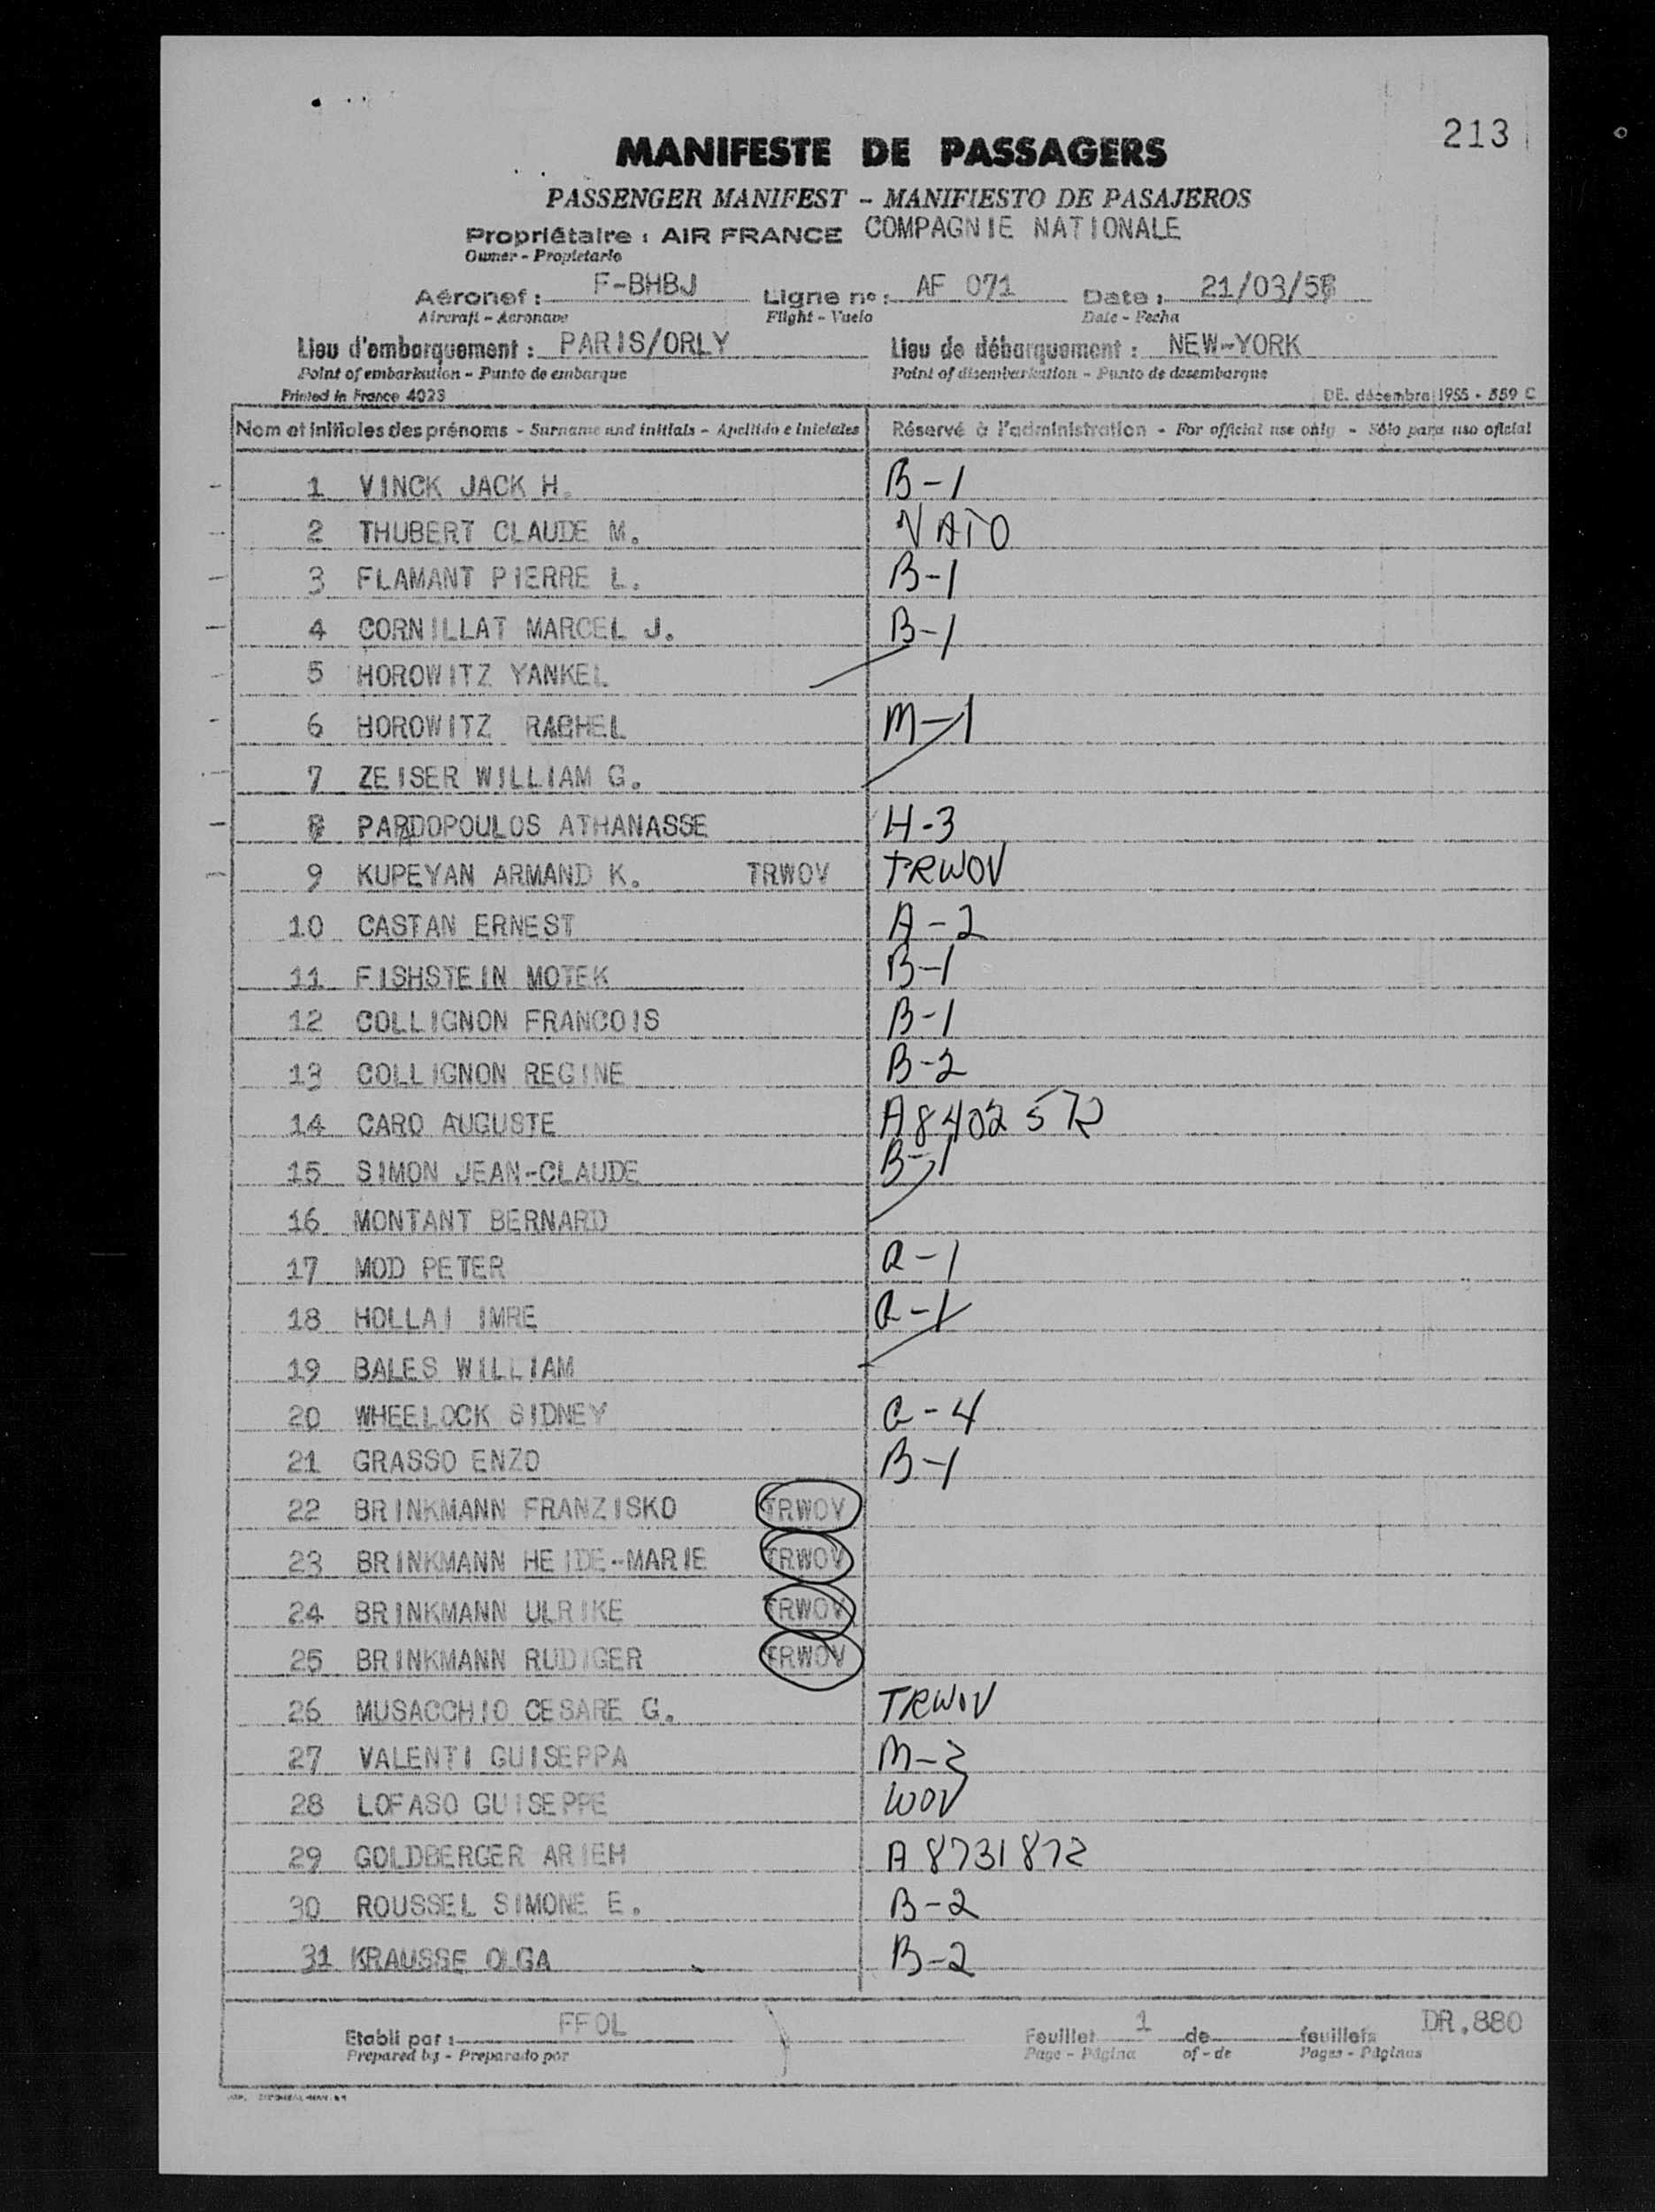 213
MANIFESTE DE PASSAGERS
PASSENGER MANIFEST - MANIFIESTO DE PASAJEROS
Propriétaire : AIR FRANCE COMPAGNIE NATIONALE
Owner - Propietario
Aéronef : F-BHBJ Ligne nº : AF 071 Date : 21/03/58
Aircraft - Aeronave Flight - Vuelo Date - Fecha
Lieu d'embarquement : PARIS/ORLY Lieu de débarquement : NEW-YORK
Point of embarkation - Punto de embarque Point of disembarkation - Punto de desembarque
Printed in France 4023 DE. décembre 1955 - 559 C
Nom et initiales des prénoms - Surname and initials - Apellido e iniciales Réservé à l'administration - For official use only - Sólo para uso oficial
1 VINCK JACK H. B-1
2 THUBERT CLAUDE M. NATO
3 FLAMANT PIERRE L. B-1
4 CORNILLAT MARCEL J. B-1
5 HOROWITZ YANKEL
6 HOROWITZ RACHEL M-1
7 ZEISER WILLIAM G.
8 PAPADOPOULOS ATHANASSE H-3
9 KUPEYAN ARMAND K. TRWOV TRWOV
10 CASTAN ERNEST A-2
11 FISHSTEIN MOTEK B-1
12 COLLIGNON FRANCOIS B-1
13 COLLIGNON REGINE B-2
14 CARO AUGUSTE A8402572
15 SIMON JEAN-CLAUDE B-1
16 MONTANT BERNARD
17 MOD PETER G-1
18 HOLLAI IMRE G-1
19 BALES WILLIAM
20 WHEELOCK SIDNEY G-4
21 GRASSO ENZO B-1
22 BRINKMANN FRANZISKO TRWOV
23 BRINKMANN HEIDE-MARIE TRWOV
24 BRINKMANN ULRIKE TRWOV
25 BRINKMANN RUDIGER TRWOV
26 MUSACCHIO CESARE G. TRWOV
27 VALENTI GUISEPPA M-2
28 LOFASO GUISEPPE WOV
29 GOLDBERGER ARIEH A 8731872
30 ROUSSEL SIMONE E. B-2
31 KRAUSSE OLGA B-2
Etabli par : FFOL Feuillet 1 de feuillets DR.880
Prepared by - Preparado por Page - Página of - de Pages - Páginas